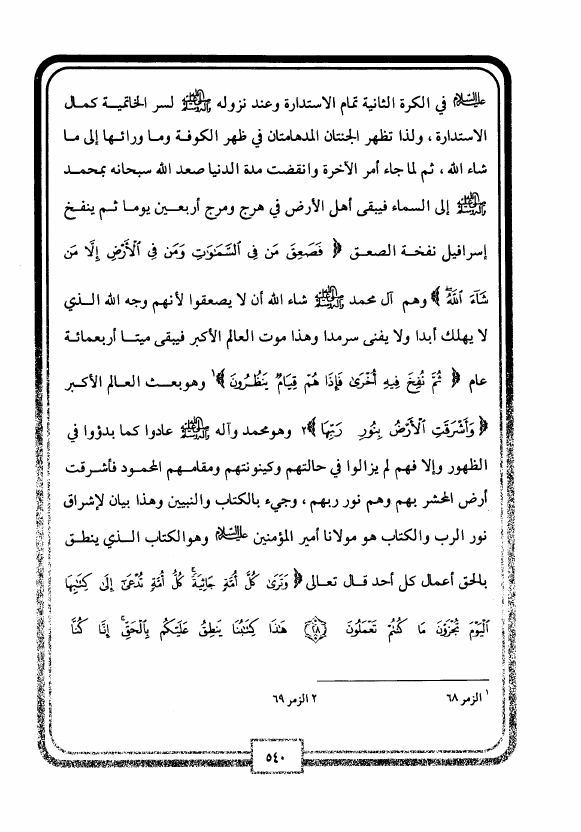 عليه السلام في الكرة الثانية تمام الاستدارة وعند نزوله ﷺ لسر الخاتمية كمال
الاستدارة ، ولذا تظهر الجنتان المدهامتان في ظهر الكوفة وما ورائها إلى ما
شاء الله ، ثم لما جاء أمر الآخرة وانقضت مدة الدنيا صعد الله سبحانه بمحمد
ﷺ إلى السماء فيبقى أهل الأرض في هرج ومرج أربعين يوما ثم ينفخ
إسرافيل نفخة الصعق ﴿ فَصَعِقَ مَن فِى ٱلسَّمَٰوَٰتِ وَمَن فِى ٱلْأَرْضِ إِلَّا مَن
شَآءَ ٱللَّهُ ﴾ وهم آل محمد ﷺ شاء الله أن لا يصعقوا لأنهم وجه الله الذي
لا يهلك أبدا ولا يفنى سرمدا وهذا موت العالم الأكبر فيبقى ميتا أربعمائة
عام ﴿ ثُمَّ نُفِخَ فِيهِ أُخْرَىٰ فَإِذَا هُمْ قِيَامٌ يَنظُرُونَ ﴾١ وهو بعث العالم الأكبر
﴿ وَأَشْرَقَتِ ٱلْأَرْضُ بِنُورِ رَبِّهَا ﴾٢ وهو محمد وآله ﷺ عادوا كما بدؤوا في
الظهور وإلا فهم لم يزالوا في حالتهم وكينونتهم ومقامهم المحمود فأشرقت
أرض المحشر بهم وهم نور ربهم ، وجيء بالكتاب والنبيين وهذا بيان لإشراق
نور الرب والكتاب هو مولانا أمير المؤمنين عليه السلام وهو الكتاب الذي ينطق
بالحق أعمال كل أحد قال تعالى ﴿ وَتَرَىٰ كُلَّ أُمَّةٍ جَاثِيَةً ۚ كُلُّ أُمَّةٍ تُدْعَىٰٓ إِلَىٰ كِتَٰبِهَا
ٱلْيَوْمَ تُجْزَوْنَ مَا كُنتُمْ تَعْمَلُونَ ﴿٢٨﴾ هَٰذَا كِتَٰبُنَا يَنطِقُ عَلَيْكُم بِٱلْحَقِّ ۚ إِنَّا كُنَّا
١ الزمر ٦٨ ٢ الزمر ٦٩
٥٤٠